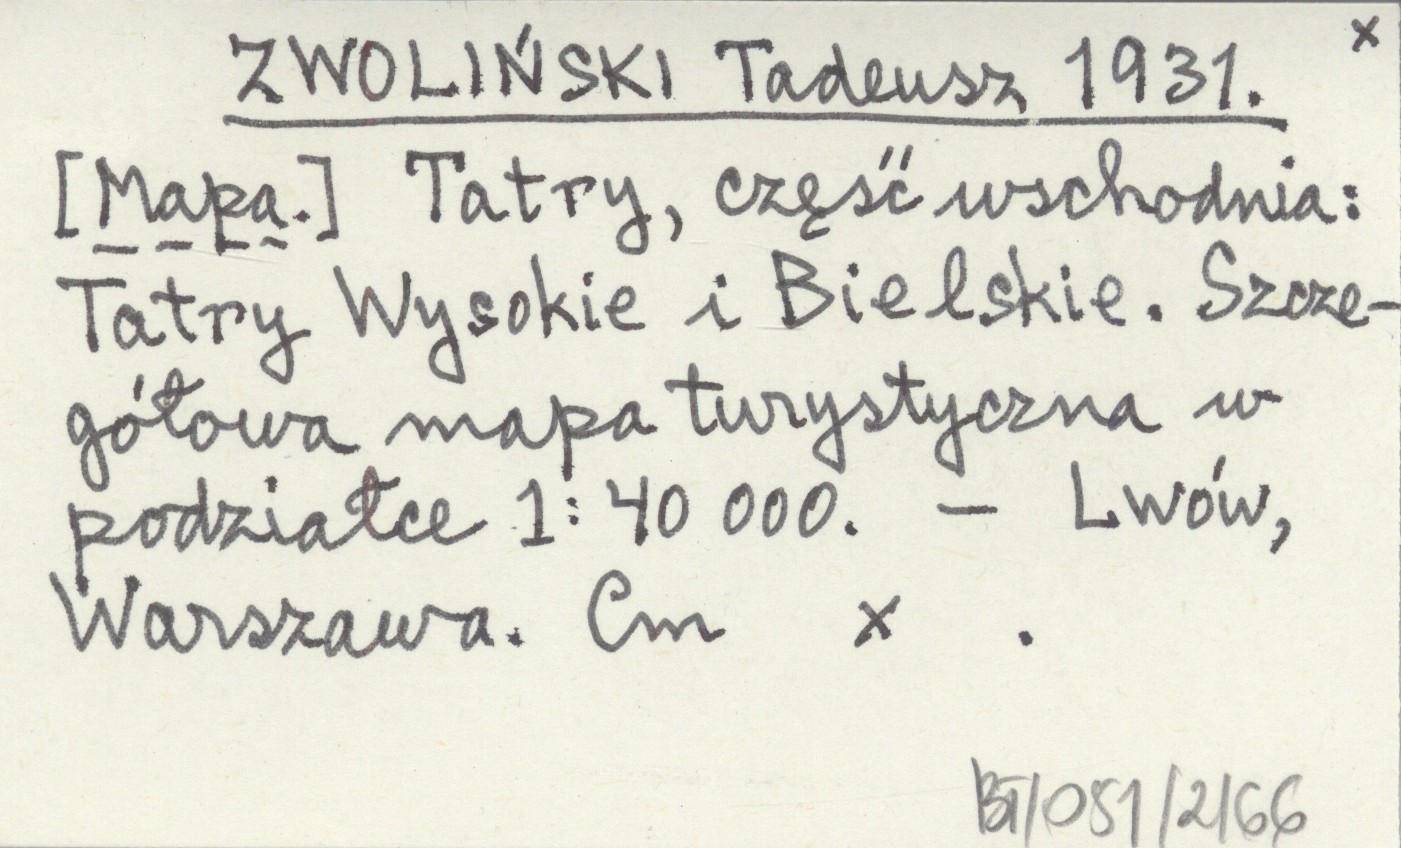 x
ZWOLIŃSKI Tadeusz 1931.
[Mapa.] Tatry, część wschodnia:
Tatry Wysokie i Bielskie. Szcze-
gółowa mapa turystyczna w
podziałce 1:40 000. — Lwów,
Warszawa. Cm x .
BT/051/2/66